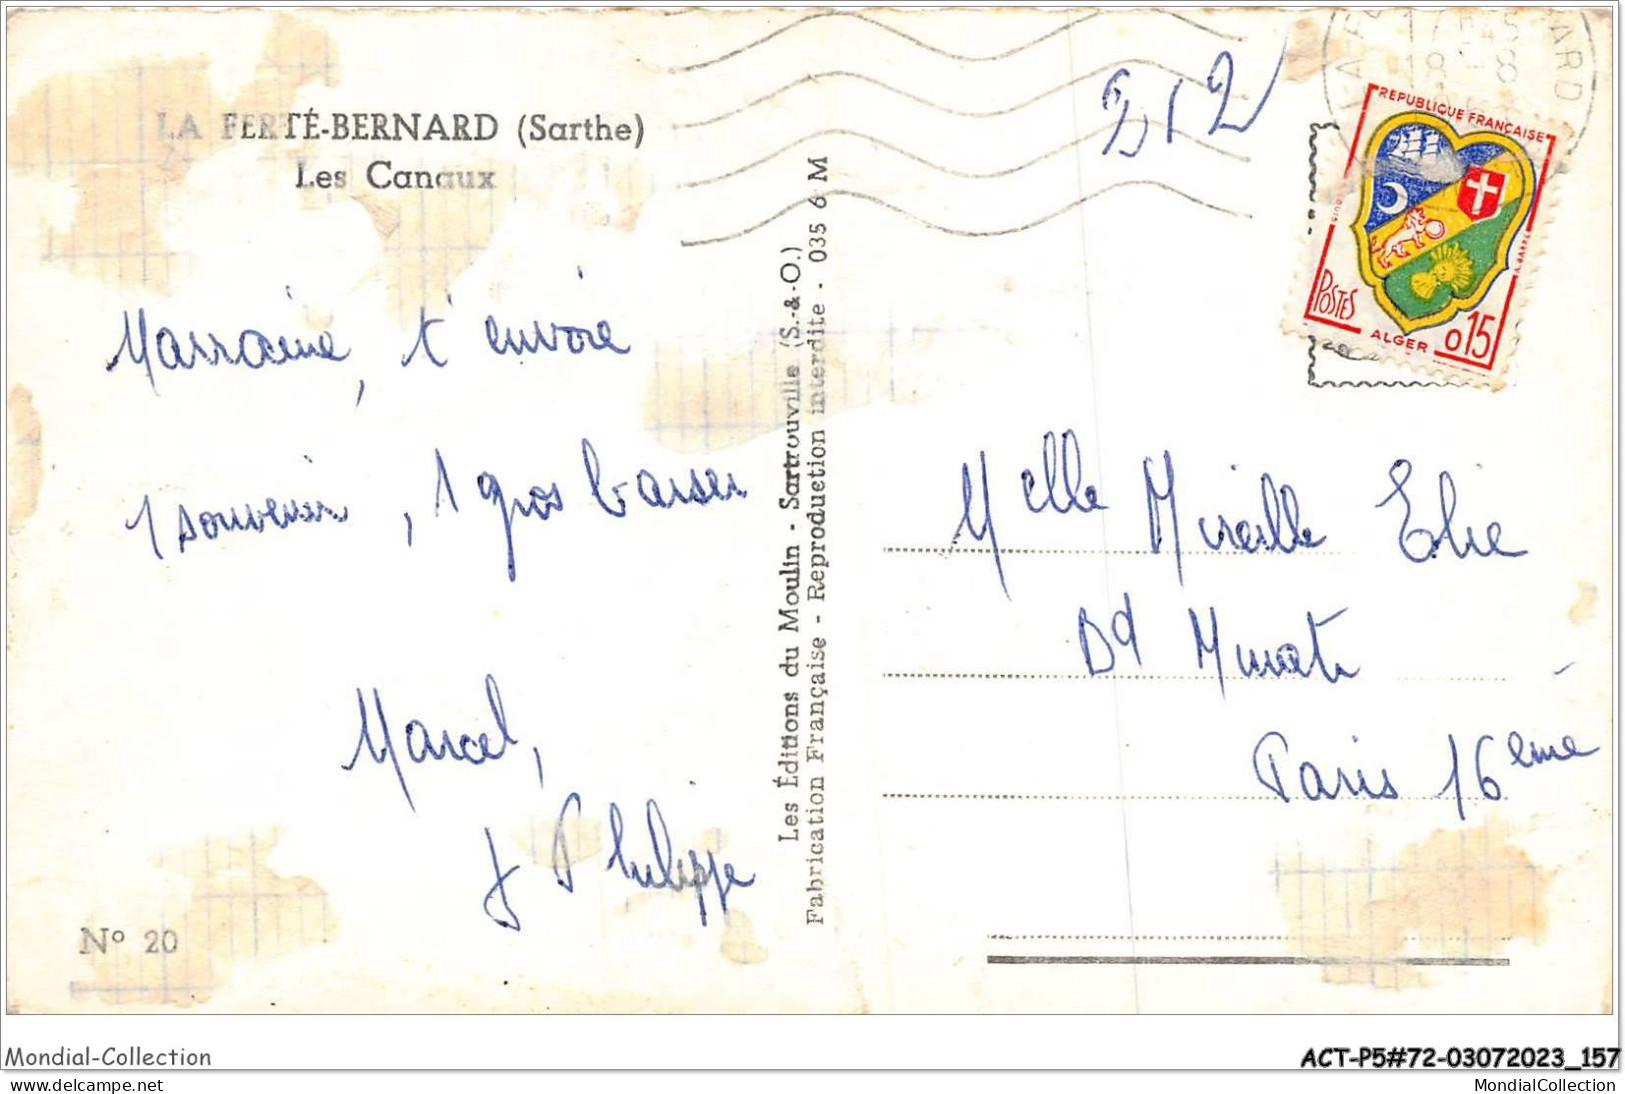 LA FERTÉ-BERNARD (Sarthe)
Les Canaux
Marraine, t'envoie
1 souvenir, 1 gros baiser
Marcel,
J Philippe
N° 20
Les Éditions du Moulin - Sartrouville (S.-&-O.)
Fabrication Française - Reproduction interdite - 035 6 M
212
REPUBLIQUE FRANÇAISE
POSTES
ALGER
0,15
Melle Mireille Elie
Bd Murat
Paris 16ème
Mondial-Collection
ACT-P5#72-03072023_157
www.delcampe.net
MondialCollection